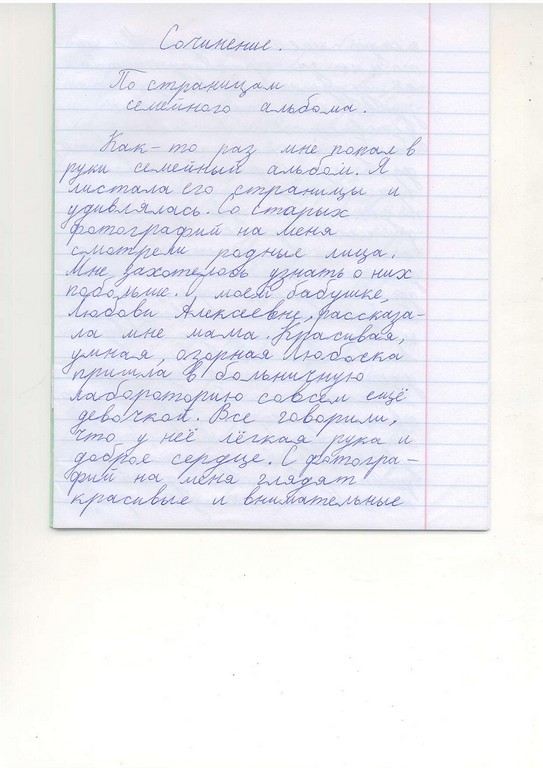 Сочинение.
По страницам
семейного альбома.
Как-то раз мне попал в
руки семейный альбом. Я
листала его страницы и
удивлялась. Со старых
фотографий на меня
смотрели родные лица.
Мне захотелось узнать о них
побольше. О моей бабушке,
Любови Алексеевне, рассказа-
ла мне мама. Красивая,
умная, озорная Любаска
пришла в больничную
лабораторию совсем ещё
девочкой. Все говорили,
что у неё лёгкая рука и
доброе сердце. С фотогра-
фий на меня глядят
красивые и внимательные